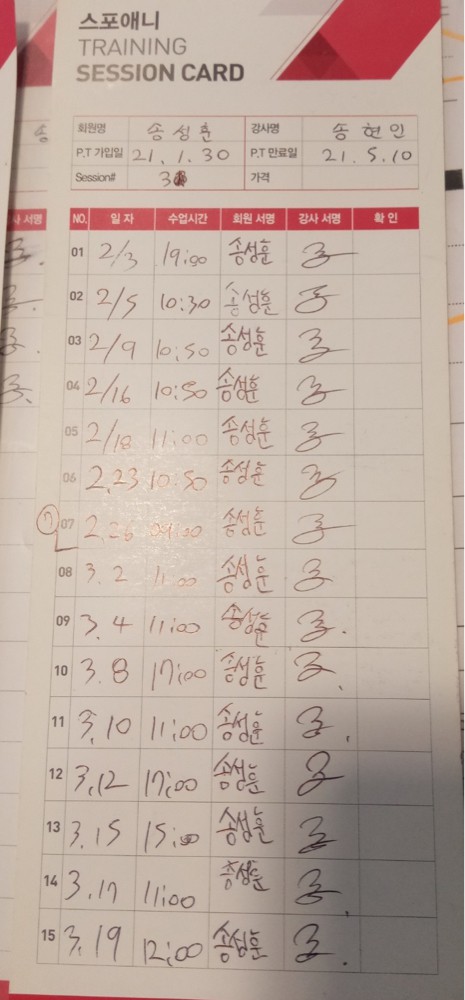 스포애니
TRAINING
SESSION CARD
회원명 송성훈 강사명 송현인
P.T 가입일 21.1.30 P.T 만료일 21.5.10
Session# 가격
사 서명 NO. 일 자 수업시간 회원 서명 강사 서명 확 인
01 2/3 19:00 송성훈
02 2/5 10:30 송성훈
03 2/9 10:50 송성훈
04 2/16 10:50 송성훈
05 2/18 11:00 송성훈
06 2.23 10:50 송성훈
07 2.26 09:00 송성훈
08 3.2 11:00 송성훈
09 3.4 11:00 송성훈
10 3.8 17:00 송성훈
11 3.10 11:00 송성훈
12 3.12 17:00 송성훈
13 3.15 15:00 송성훈
14 3.17 11:00 송성훈
15 3.19 12:00 송성훈